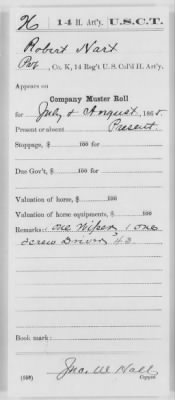 K 14 H. Art'y. U.S.C.T.
Robert Nart
Pvt, Co. K, 14 Reg't U. S. Col'd H. Art'y.
Appears on
Company Muster Roll
for July & August, 1865.
Present or absent Present.
Stoppage, $ 100 for
Due Gov't, $ 100 for
Valuation of horse, $ 100
Valuation of horse equipments, $ 100
Remarks: One Wiper, 1 one
Screw Driver $ 43
Book mark:
Jno. W. Hall
(358) Copyist.